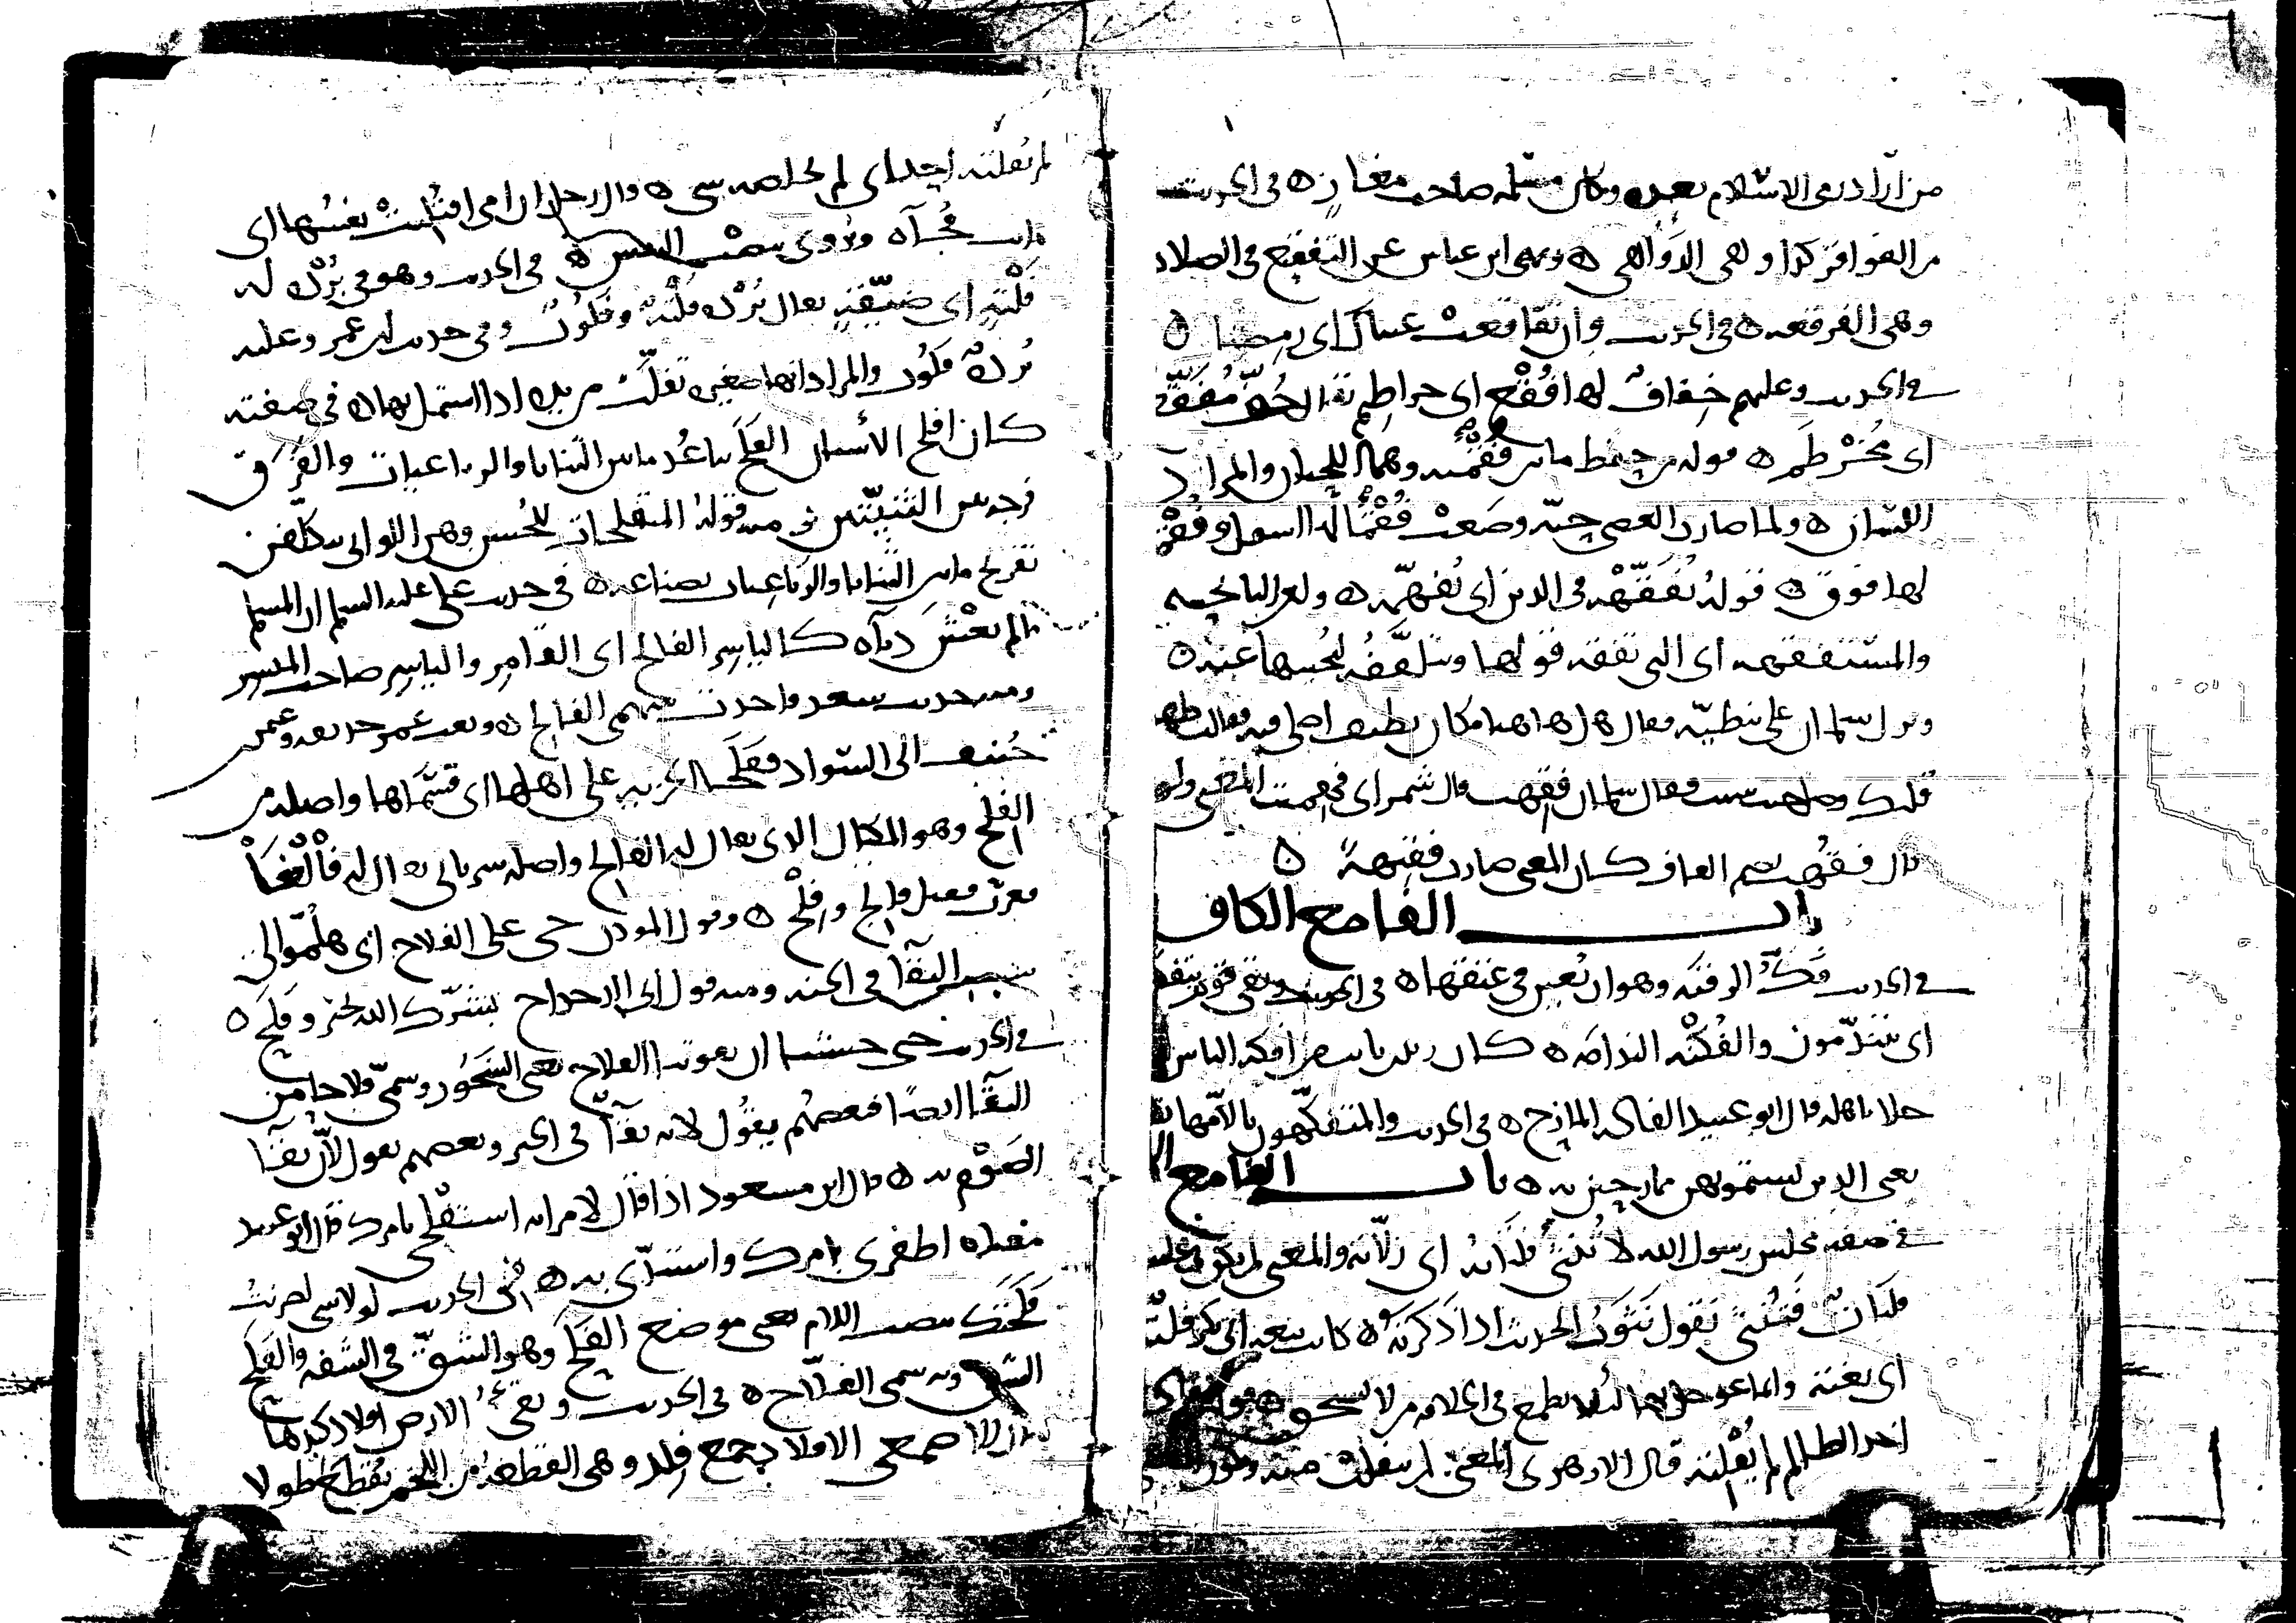 من اراد رمى الاسلام بعده وكان مسلمه صاحب مغازٍ ه في الحديث
من الفواقر كذا وهي الدواهي ه ونهى ابن عباس عن التفقيع في الصلاة
وهي الفرقعه ه في الحديث وان تقاقعت عيناك اي رمصتا ه
في الحديث وعليهم خفاف لها فُقْع اي خراطيم يقال خُفّ مُفَقَّع
اي مُخَرْطَم ه قوله من حفظ ما بين فُقْمَيْه وهما اللحيان والمراد
اللسان ه ولما صارت العصى حيّه وضعت فُقْمًا لها اسفل وفُقْمًا
لها فوق ه قوله يُفَقِّهْه في الدين اي يُفهّمه ه ولعن النائحه
والمستفقهه اي التي تفقه قولها وتتلقّفُه لتجيبها عنه ه
ونزل سلمان على نبطيّه فقال هل هاهنا مكان نظيف اصلي فيه فقالت طهر
قلبك وصل حيث شيت فقال سلمان فقهت قال شمر اي فهمت المعنى ولو
قال فقُهت بضم القاف كان المعنى صارت فقيهة ه
باب الفا مع الكاف
في الحديث فَكّ الرقبه وهو ان يُعين في عتقها ه في الحديث وبقى قوم يتفكنون
اي يتندّمون والفُكْنَه الندامه ه كان زيد بن ثابت من افكه الناس
اذا خلا باهله قال ابو عبيد الفاكه المازح ه في الحديث والمتفكّهون بالامّهات
يعني الذين يشتمونهن ممازحين به ه باب الفا مع اللام
في صفه مجلس رسول الله لا تُنثى فلتاته اي زلّاته والمعنى لم يكن في مجلسه
فلتاتٌ فتُنثى تقول نثوتُ الحديث اذا ذكرته ه كانت بيعه ابي بكر فلته
اي بغتة وانما عوجل بها لئلا يطمع في الخلافه من لا يستحق ه
اخذ الظالم لم يُفْلته قال الازهري المعنى لم ينفلت منه ويكون
لم يُفلته احد اي لم يخلصه شي ه وقال رجل ان امي افتُلتت نفسُها اي
ماتت فُجآه ويُروى بنصب النفس ه في الحديث وهو في بُرْده له
فَلْتة اي ضيّقةٍ يقال بُرْده فَلْتة وفَلُوت وفي حديث ابن عمر وعليه
بُرده فلوت والمراد انها صغيره تفلّت من يده اذا اشتمل بها ه في صفته
كان افلج الاسنان الفَلَج تباعُد ما بين الثنايا والرباعيات والفَرَق
فرجه بين الثنيّتين ومنه قوله المتفلجات للحُسن وهن اللواتي يتكلفن
تفريج ما بين الثنايا والرباعيات بصناعه ه في حديث علي عليه السلم ان المسلم
ما لم يغْشَ دناه كالياسر الفالج اي القامِر والياسِر صاحب الميسر
ومنه حديث سعد فاخذت سهمي الفالج ه وبعث عمر حذيفه وعثمن
بن حُنيف الى السواد ففلجا الجزيه على اهلها اي قسّماها واصله من
الفلج وهو المكيال الذي يقال له الفالج واصله سرياني يقال له فالغا
معرّب فقيل فالج وفِلْج ه وقول الموذن حي على الفلاح اي هلُمّوا الى
سبب البقآ في الجنه ومنه قول ابي الدحداح بشّرك الله بخير وفَلَح ه
في الحديث حتى خشينا ان يفوتنا الفلاح يعني السَحُور وسمّي فلاحا من
البقآ ايضًا فبعضهم يقُول لانه بقآ في الخير وبعضهم يقول لانّ بقآ
الصوم به ه قال ابن مسعود اذا قال لامراته استفلحي بامرك قال ابو عبيد
معناه اظفري بامرك واستبدّي به ه في الحديث لولا شي لضربتُ
فَلَحَتَك بنصب اللام يعني موضع الفَلَح وهو الشقّ في الشفه والفَلْح
الشق وبه سمي الفلّاح ه في الحديث وتقيءُ الارض افلاذ كبدها
قال الاصمعي الافلاذ جمع فِلذ وهي القطعه من اللحم تُقطع طولا